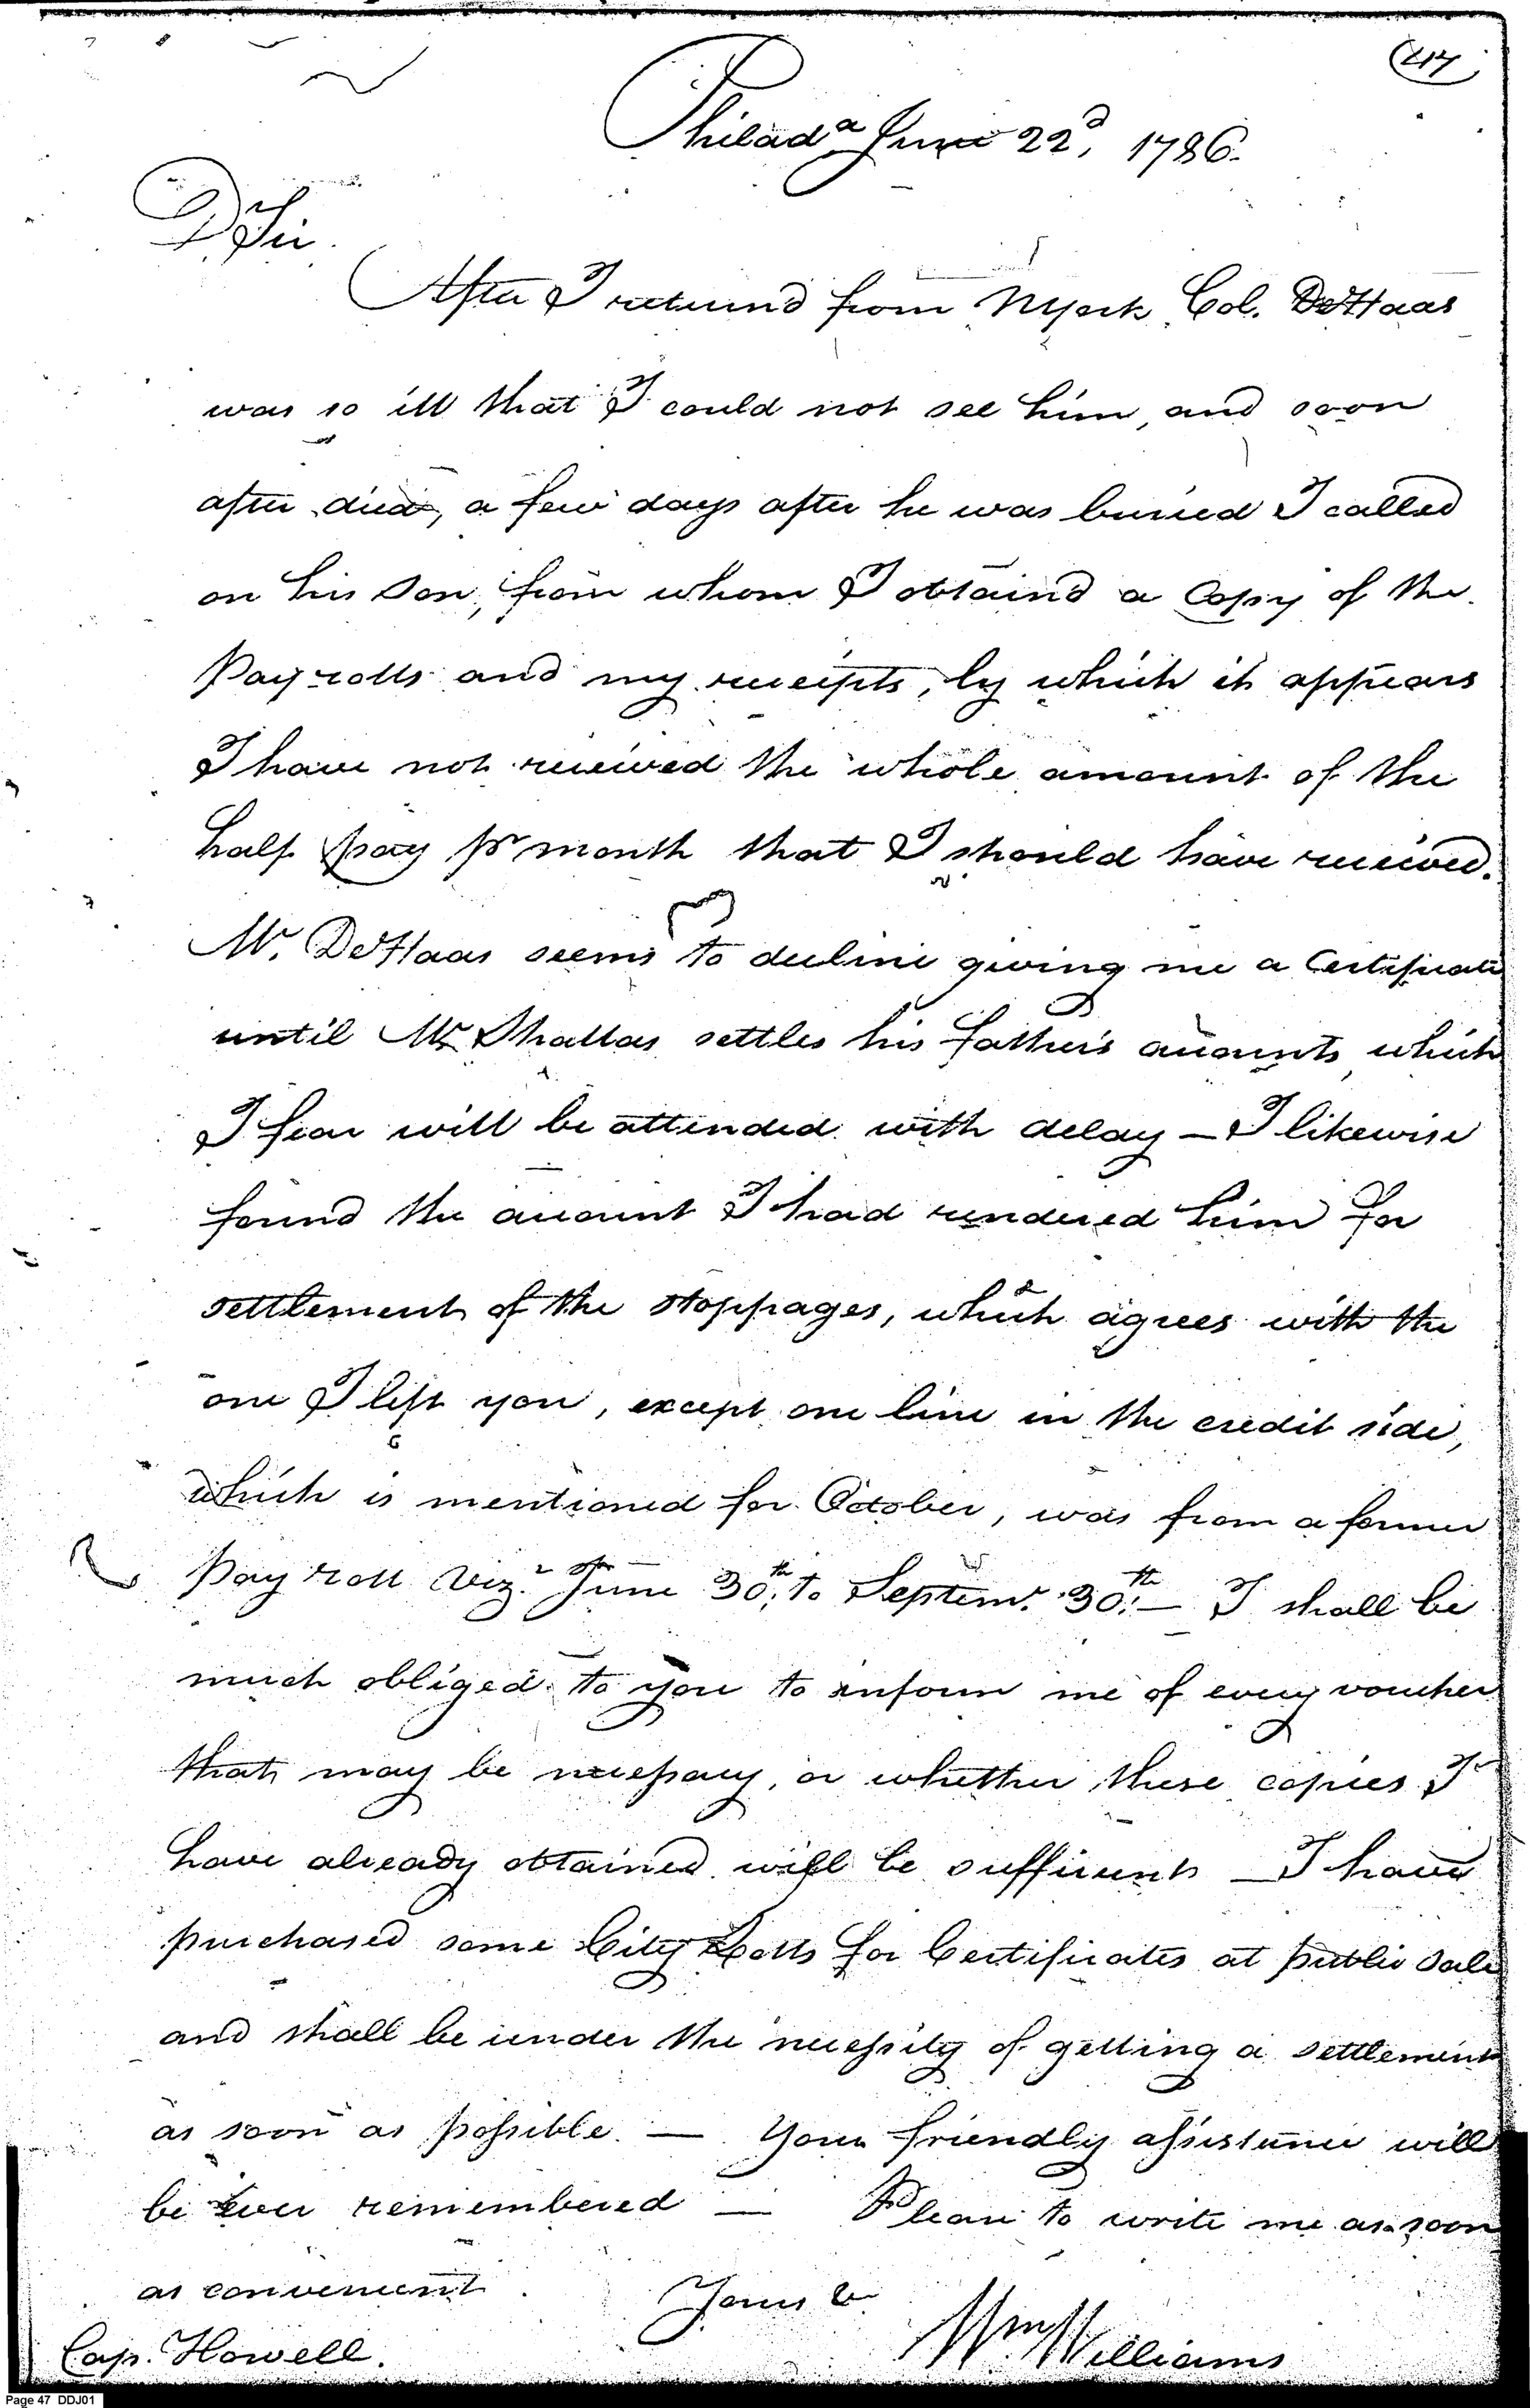 (47)
Philada June 22d, 1786.
D Sir.
After I returnd from NYork Col. DeHaas
was so ill that I could not see him, and soon
after died, a few days after he was buried I called
on his Son, from whom I obtaind a Copy of the
Payrolls and my receipts, by which it appears
I have not received the whole amount of the
half pay pr month that I should have received.
Mr. DeHaas seems to decline giving me a Certificate
until Mr. Shallas settles his father's accounts which
I fear will be attended with delay — I likewise
found the account I had rendered him for
settlement of the stoppages, which agrees with the
one I left you, except one line in the credit side,
which is mentioned for October, was from a former
Pay roll Viz. June 30th, to Septemr. 30th — I shall be
much obliged to you to inform me of every voucher
that may be necessary, or whether these copies I
have already obtained will be sufficient — I have
purchased some City Lotts for Certificates at public Sale
and shall be under the necessity of getting a settlement
as soon as possible. — Your friendly assistance will
be ever remembered — Please to write me as soon
as convenient.
Yours &
Wm Williams
Cap. Howell.
Page 47 DDJ01